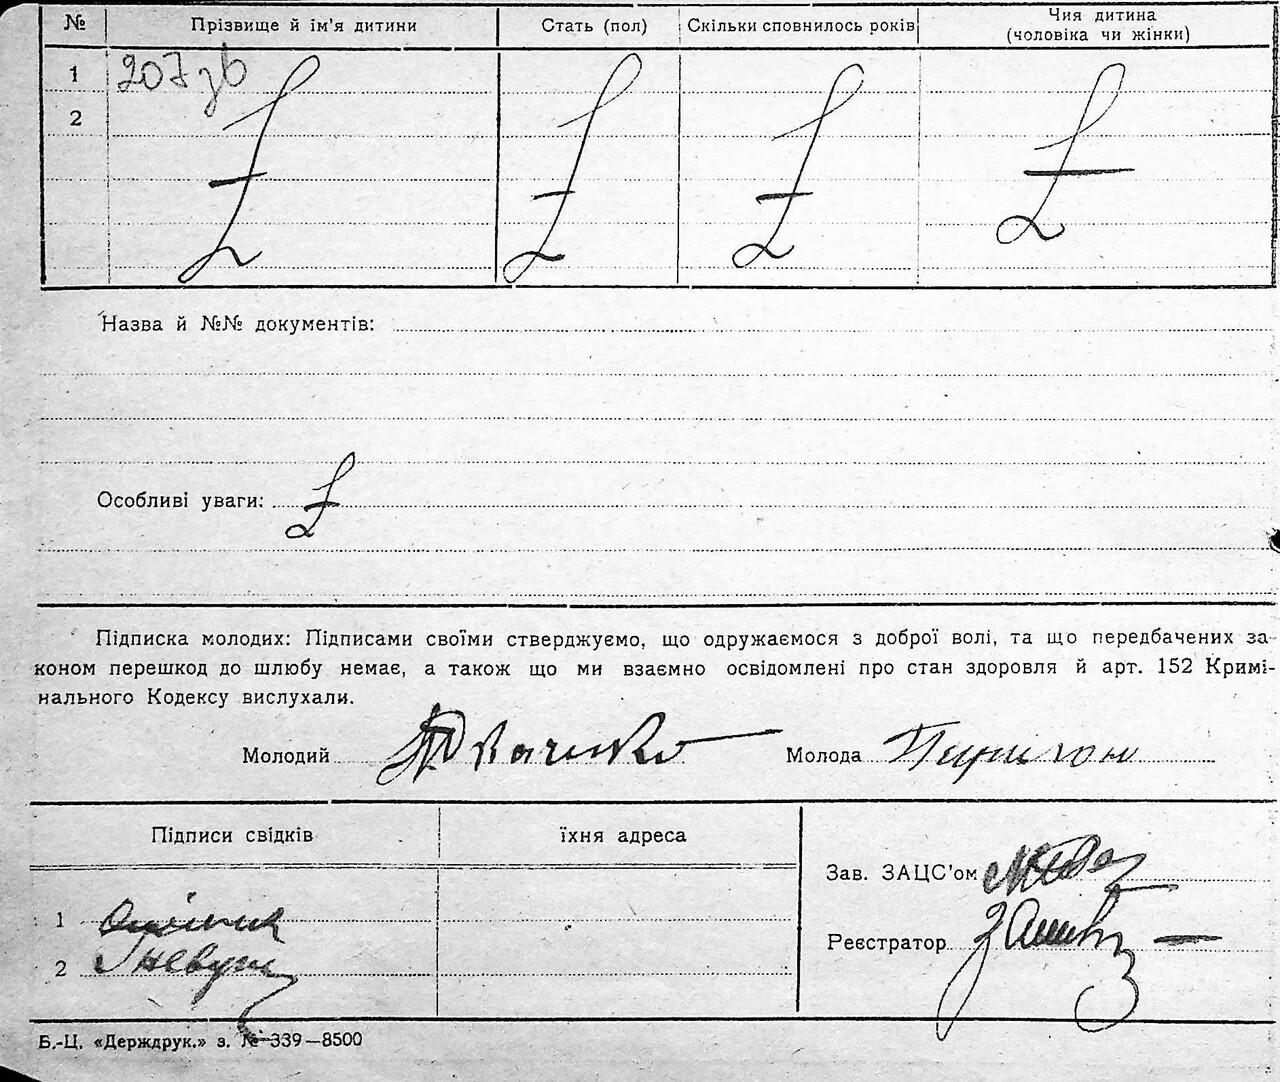 № Прізвище й ім’я дитини Стать (пол) Скільки сповнилось років Чия дитина (чоловіка чи жінки)
1 207зв
2
Назва й №№ документів:
Особливі уваги:
Підписка молодих: Підписами своїми стверджуємо, що одружаємося з доброї волі, та що передбачених за-
коном перешкод до шлюбу немає, а також що ми взаємно освідомлені про стан здоровля й арт. 152 Кримі-
нального Кодексу вислухали.
Молодий Молода
Підписи свідків їхня адреса
Зав. ЗАЦС’ом
1
Реєстратор
2
Б.-Ц. «Держдрук.» з. № 339—8500